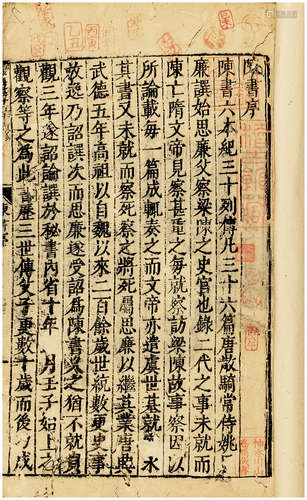 陳書序
陳書六本紀三十列傳凡三十六篇唐散騎常侍姚
廉譔始思廉父察梁陳之史官也錄二代之事未就
陳亡隋文帝見察甚重之每就察訪梁陳故事察因以
所論載每一篇成輒奏之而文帝亦遣虞世基就 求
其書又未就而察死察之將死屬思廉以繼其業唐興
武德五年高祖以自魏以來二百餘歲世統數更史事
放逸乃詔譔次而思廉遂受詔爲陳書久之猶不就貞
觀三年遂詔論譔於秘書內省十年 月壬子始上之
觀察等之爲此書歷三世傳父子更數十歲而後乃成